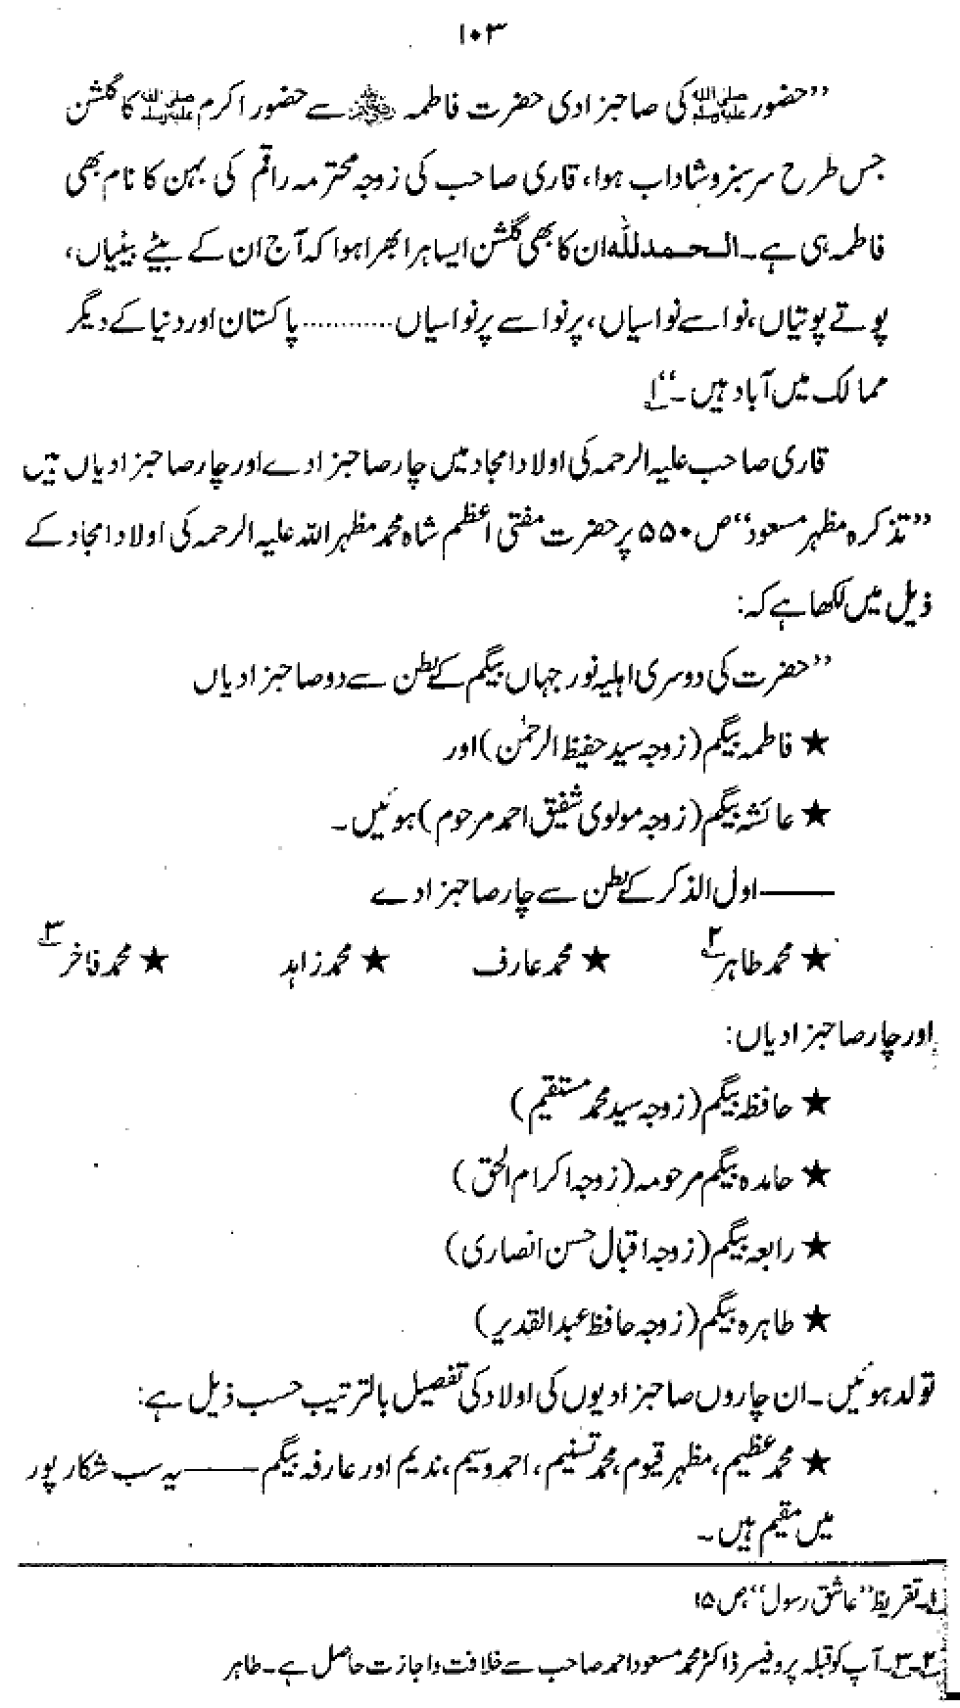 ۱۰۳
”حضور ﷺ کی صاحبزادی حضرت فاطمہ رضی اللہ عنہا سے حضور اکرم ﷺ کا گلشن
جس طرح سرسبز و شاداب ہوا، قاری صاحب کی زوجہ محترمہ راقم کی بہن کا نام بھی
فاطمہ ہی ہے۔ الحمدللہ ان کا بھی گلشن ایسا ہرا بھرا ہوا کہ آج ان کے بیٹے بیٹیاں،
پوتے پوتیاں، نواسے نواسیاں، پرنواسے پرنواسیاں ............ پاکستان اور دنیا کے دیگر
ممالک میں آباد ہیں۔“ ۱
قاری صاحب علیہ الرحمہ کی اولاد امجاد میں چار صاحبزادے اور چار صاحبزادیاں ہیں
”تذکرہ مظہر مسعود“ ص ۵۵۰ پر حضرت مفتی اعظم شاہ محمد مظہر اللہ علیہ الرحمہ کی اولاد امجاد کے
ذیل میں لکھا ہے کہ:
”حضرت کی دوسری اہلیہ نور جہاں بیگم کے بطن سے دو صاحبزادیاں
★ فاطمہ بیگم (زوجہ سید حفیظ الرحمٰن) اور
★ عائشہ بیگم (زوجہ مولوی شفیق احمد مرحوم) ہوئیں۔
——اول الذکر کے بطن سے چار صاحبزادے
★ محمد طاہر ۲ ★ محمد عارف ★ محمد زاہد ★ محمد فاخر ۳
اور چار صاحبزادیاں:
★ حافظہ بیگم (زوجہ سید محمد مستقیم)
★ حامدہ بیگم مرحومہ (زوجہ اکرام الحق)
★ رابعہ بیگم (زوجہ اقبال حسن انصاری)
★ طاہرہ بیگم (زوجہ حافظ عبدالقدیر)
تولد ہوئیں۔ ان چاروں صاحبزادیوں کی اولاد کی تفصیل بالترتیب حسب ذیل ہے:
★ محمد عظیم، مظہر قیوم، محمد تسنیم، احمد وسیم، ندیم اور عارفہ بیگم —— یہ سب شکارپور
میں مقیم ہیں۔
۱۔ تقریظ ”عاشق رسول“، ص ۱۵
۲۔۳۔ آپ کو قبلہ پروفیسر ڈاکٹر محمد مسعود احمد صاحب سے خلافت و اجازت حاصل ہے۔ طاہر